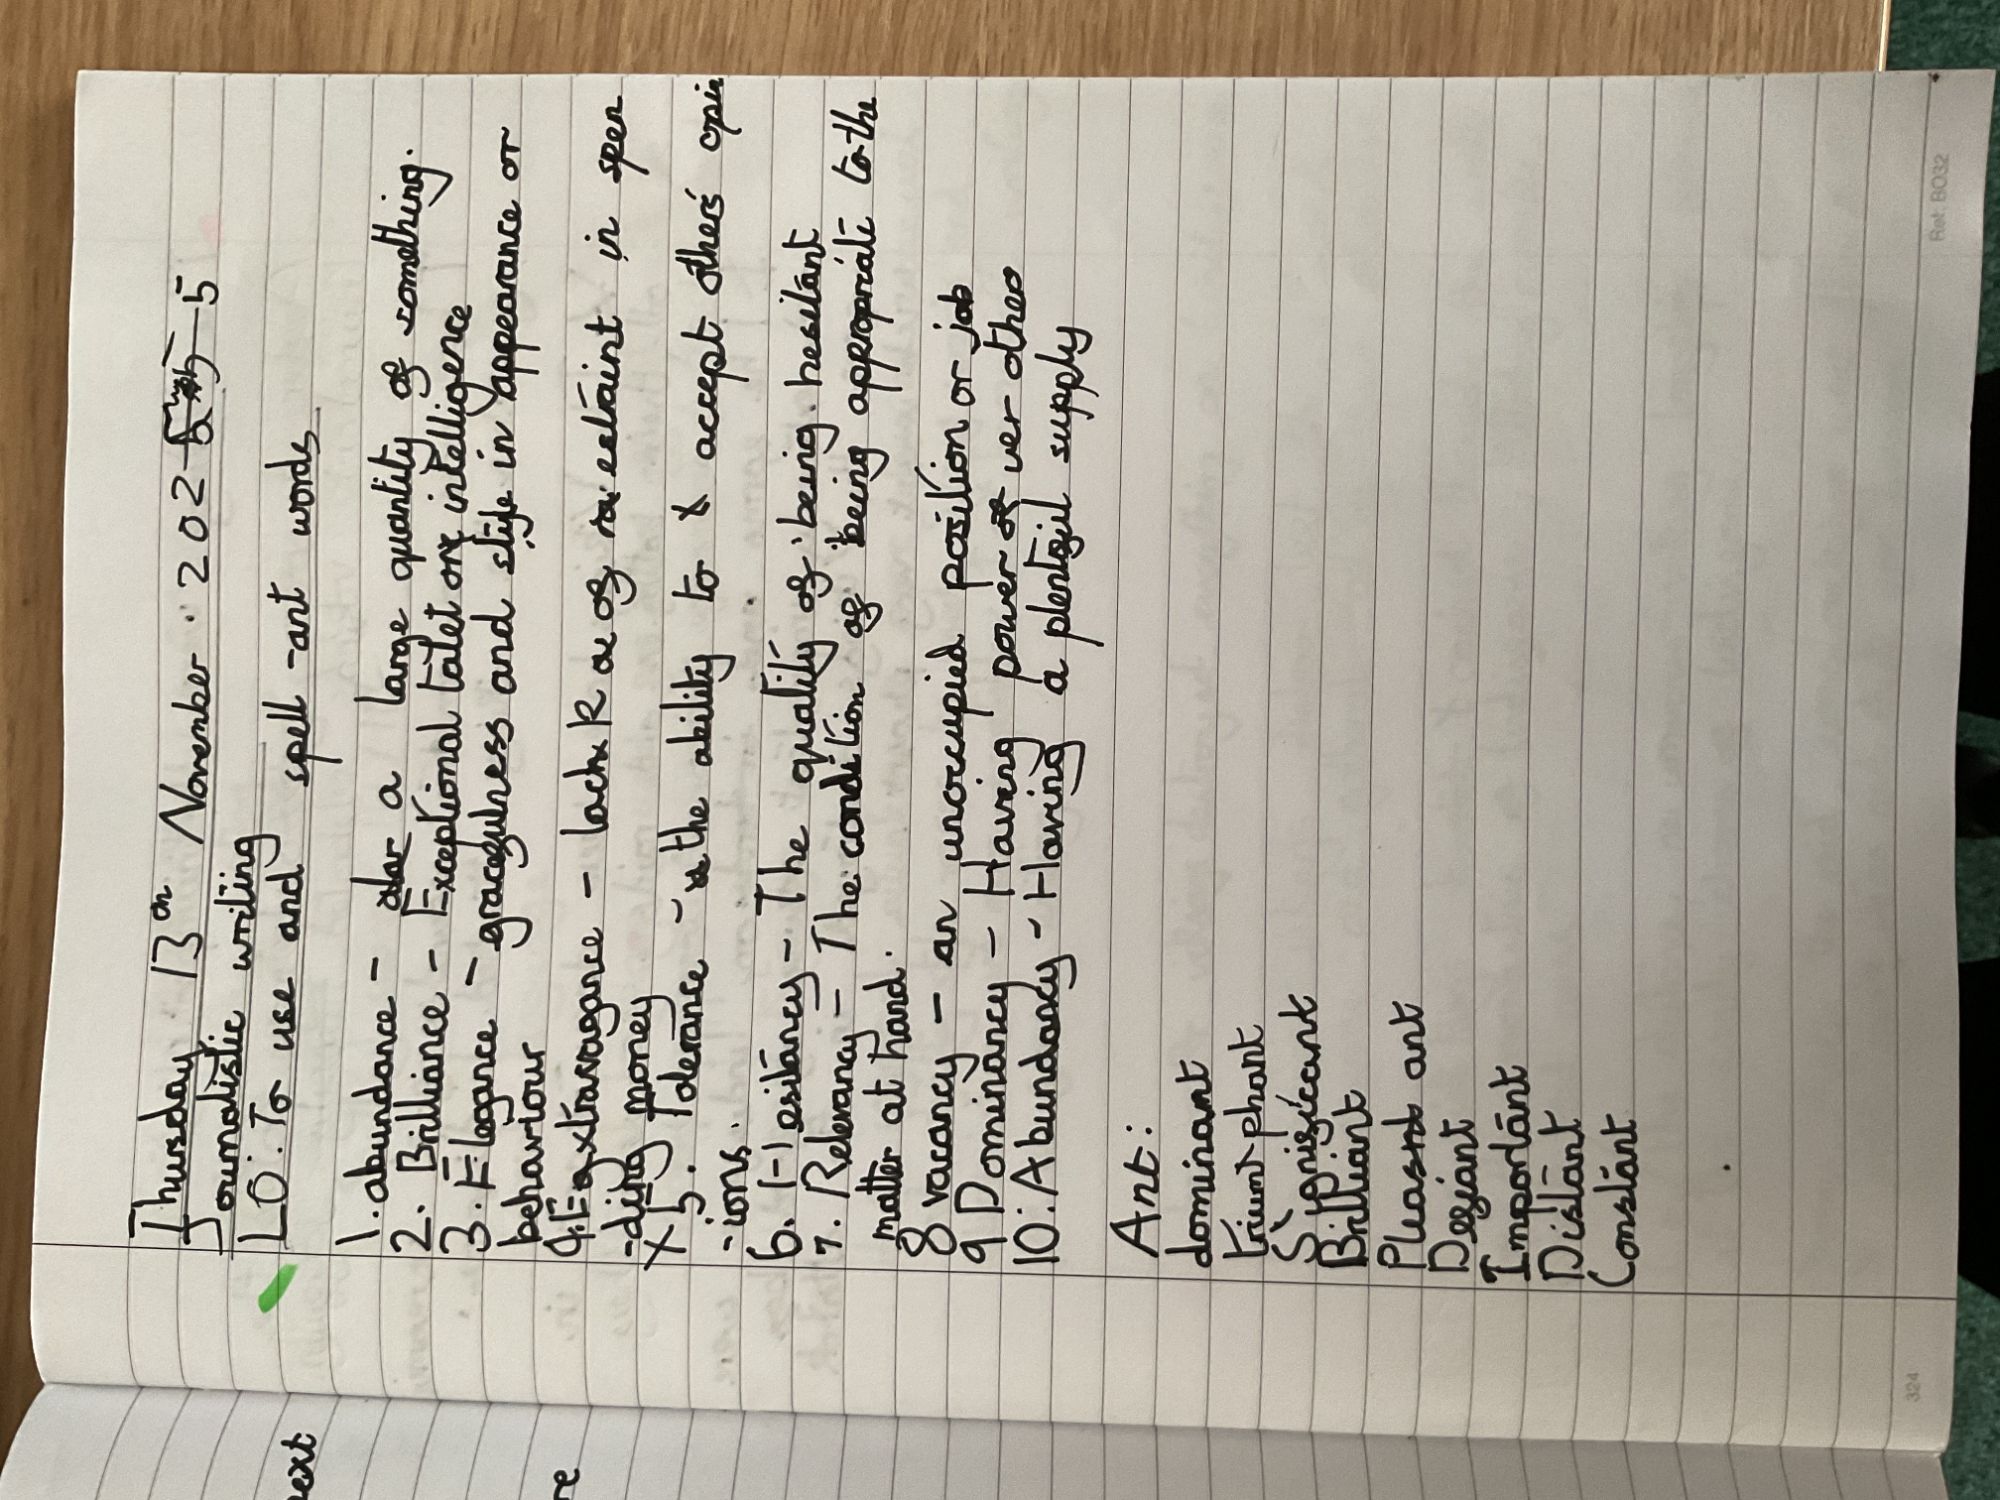 Thursday 13th November 2025
Journalistic writing
LO: To use and spell -ant words
1. abundance - a large quantity of something.
2. Brilliance - Exceptional talet or intelligence
3. Elegance - gracefulness and style in appearance or
behaviour
4. Extravagance - lack of restraint in spen
-ding money
x 5. Tolerance - the ability to accept others opin
-ions.
6. Hesitancy - The quality of being hesitant
7. Relevancy - The condition of being appropriate to the
matter at hand.
8 vacancy - an unoccupied position or job
9 Dominancy - Having power over other
10. Abundancy - Having a plentifil supply
Ant:
dominant
triumphant
Significant
Brilliant
Pleasant
Defiant
Important
Distant
Constant
324
Ref: BO32
ext
re